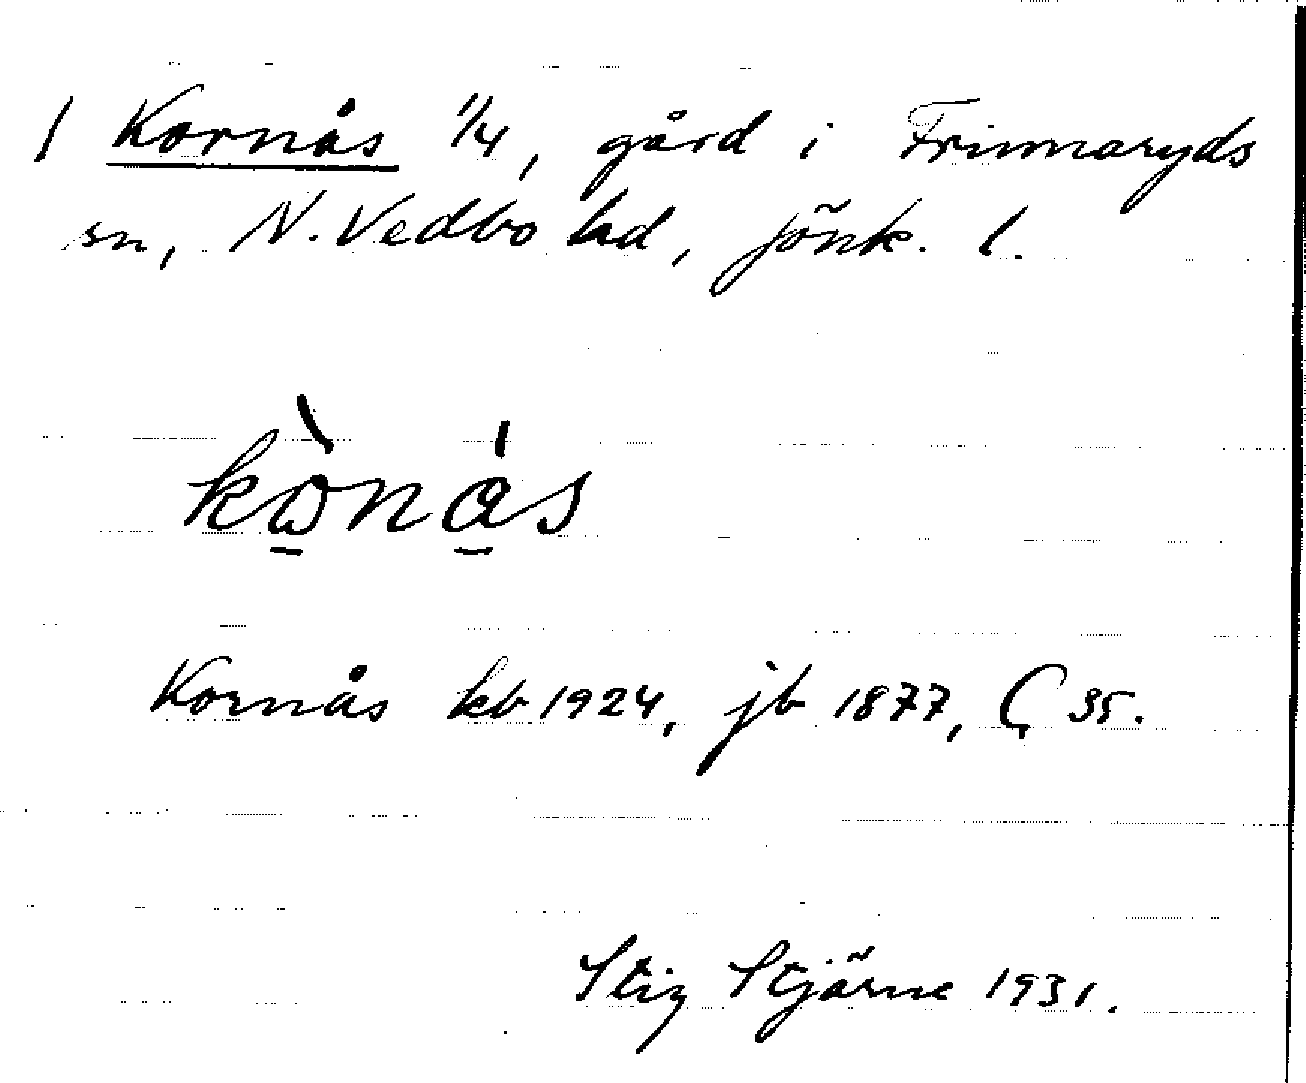 1 Kornås 1/4, gård i Frinnaryds
sn, N. Vedbo hd, Jönk. l.
kònás
Kornås kb 1924, jb 1877, Ç 35.
Stig Stjärne 1931.